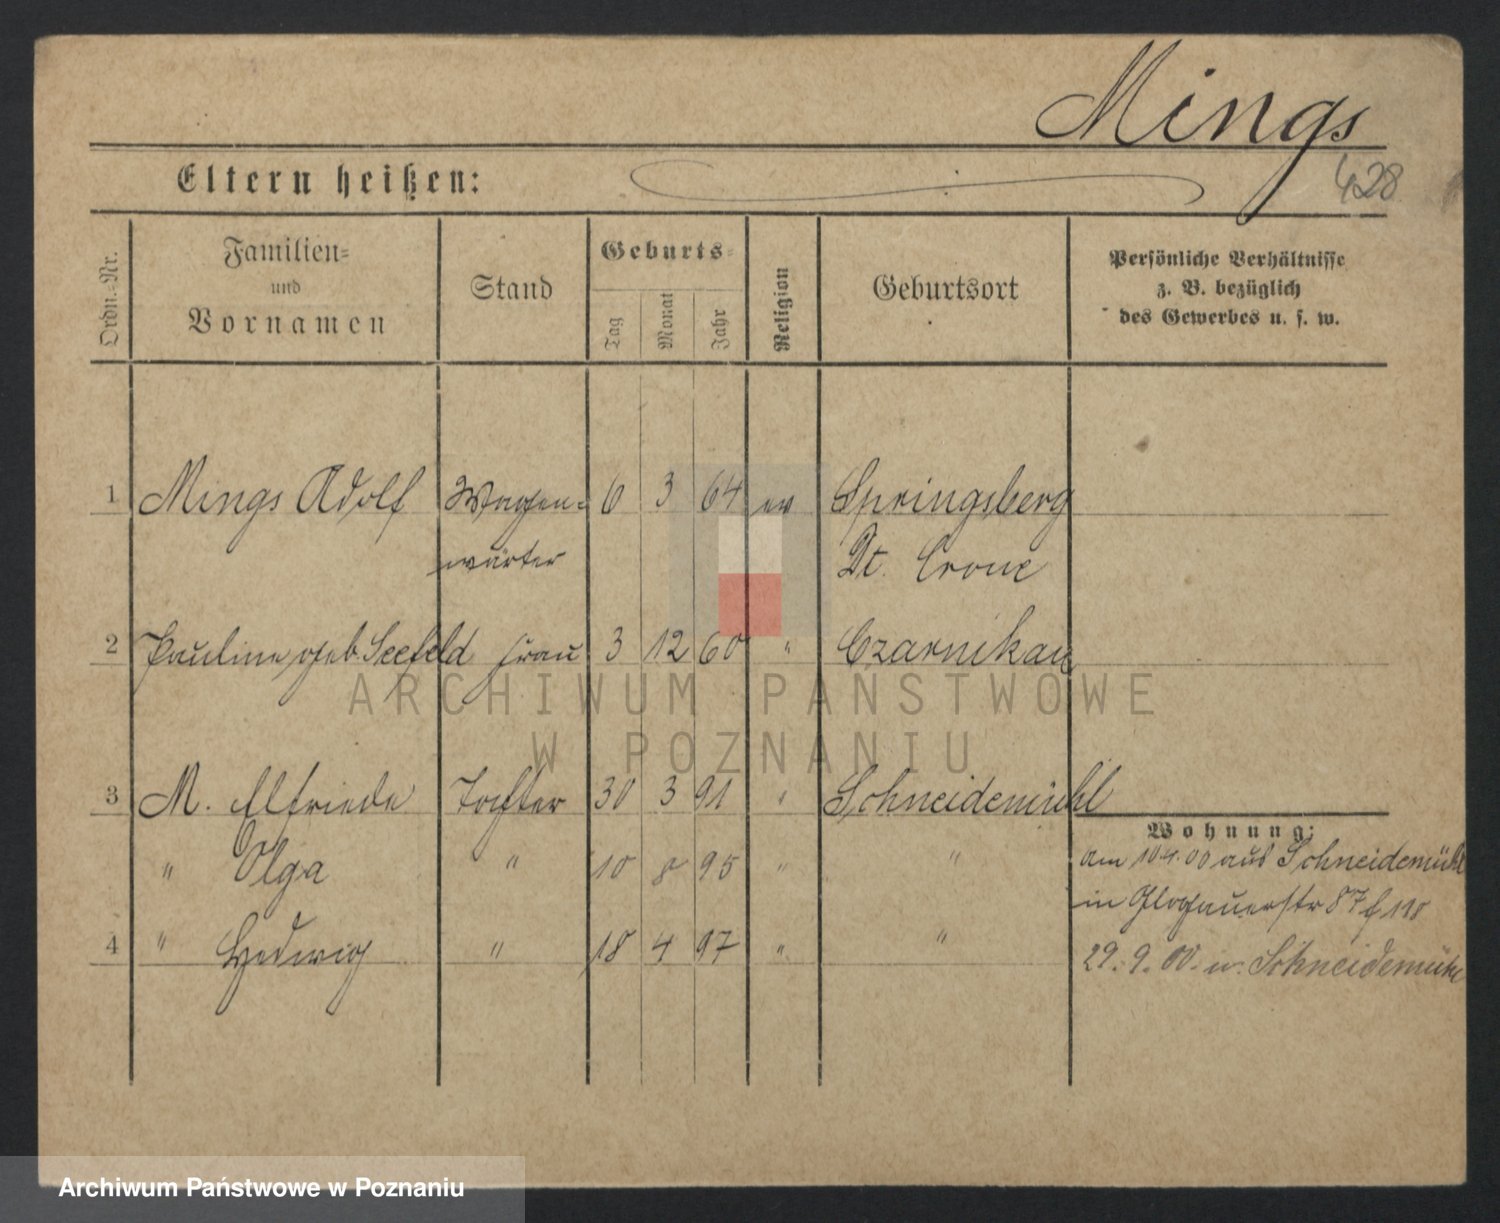 Mings
428
Eltern heißen:
Ordn.-Nr.
Familien-
und
Vornamen
Stand
Geburts-
Tag
Monat
Jahr
Religion
Geburtsort
Persönliche Verhältnisse
z. B. bezüglich
des Gewerbes u. s. w.
1 Mings Adolf Wagen= 6 3 64 ev Springsberg
wärter Dt. Crone
2 Pauline geb. Seefeld Frau 3 12 60 " Czarnikau
3 M. Elfriede Tochter 30 3 91 " Schneidemühl
Wohnung:
" Olga " 10 8 95 " "
am 10 4. 00 aus Schneidemühl
in Glogauerstr 87
4 " Hedwig " 18 4 97 " "
29. 9. 00. n. Schneidemühl
ARCHIWUM PAŃSTWOWE
W POZNANIU
Archiwum Państwowe w Poznaniu